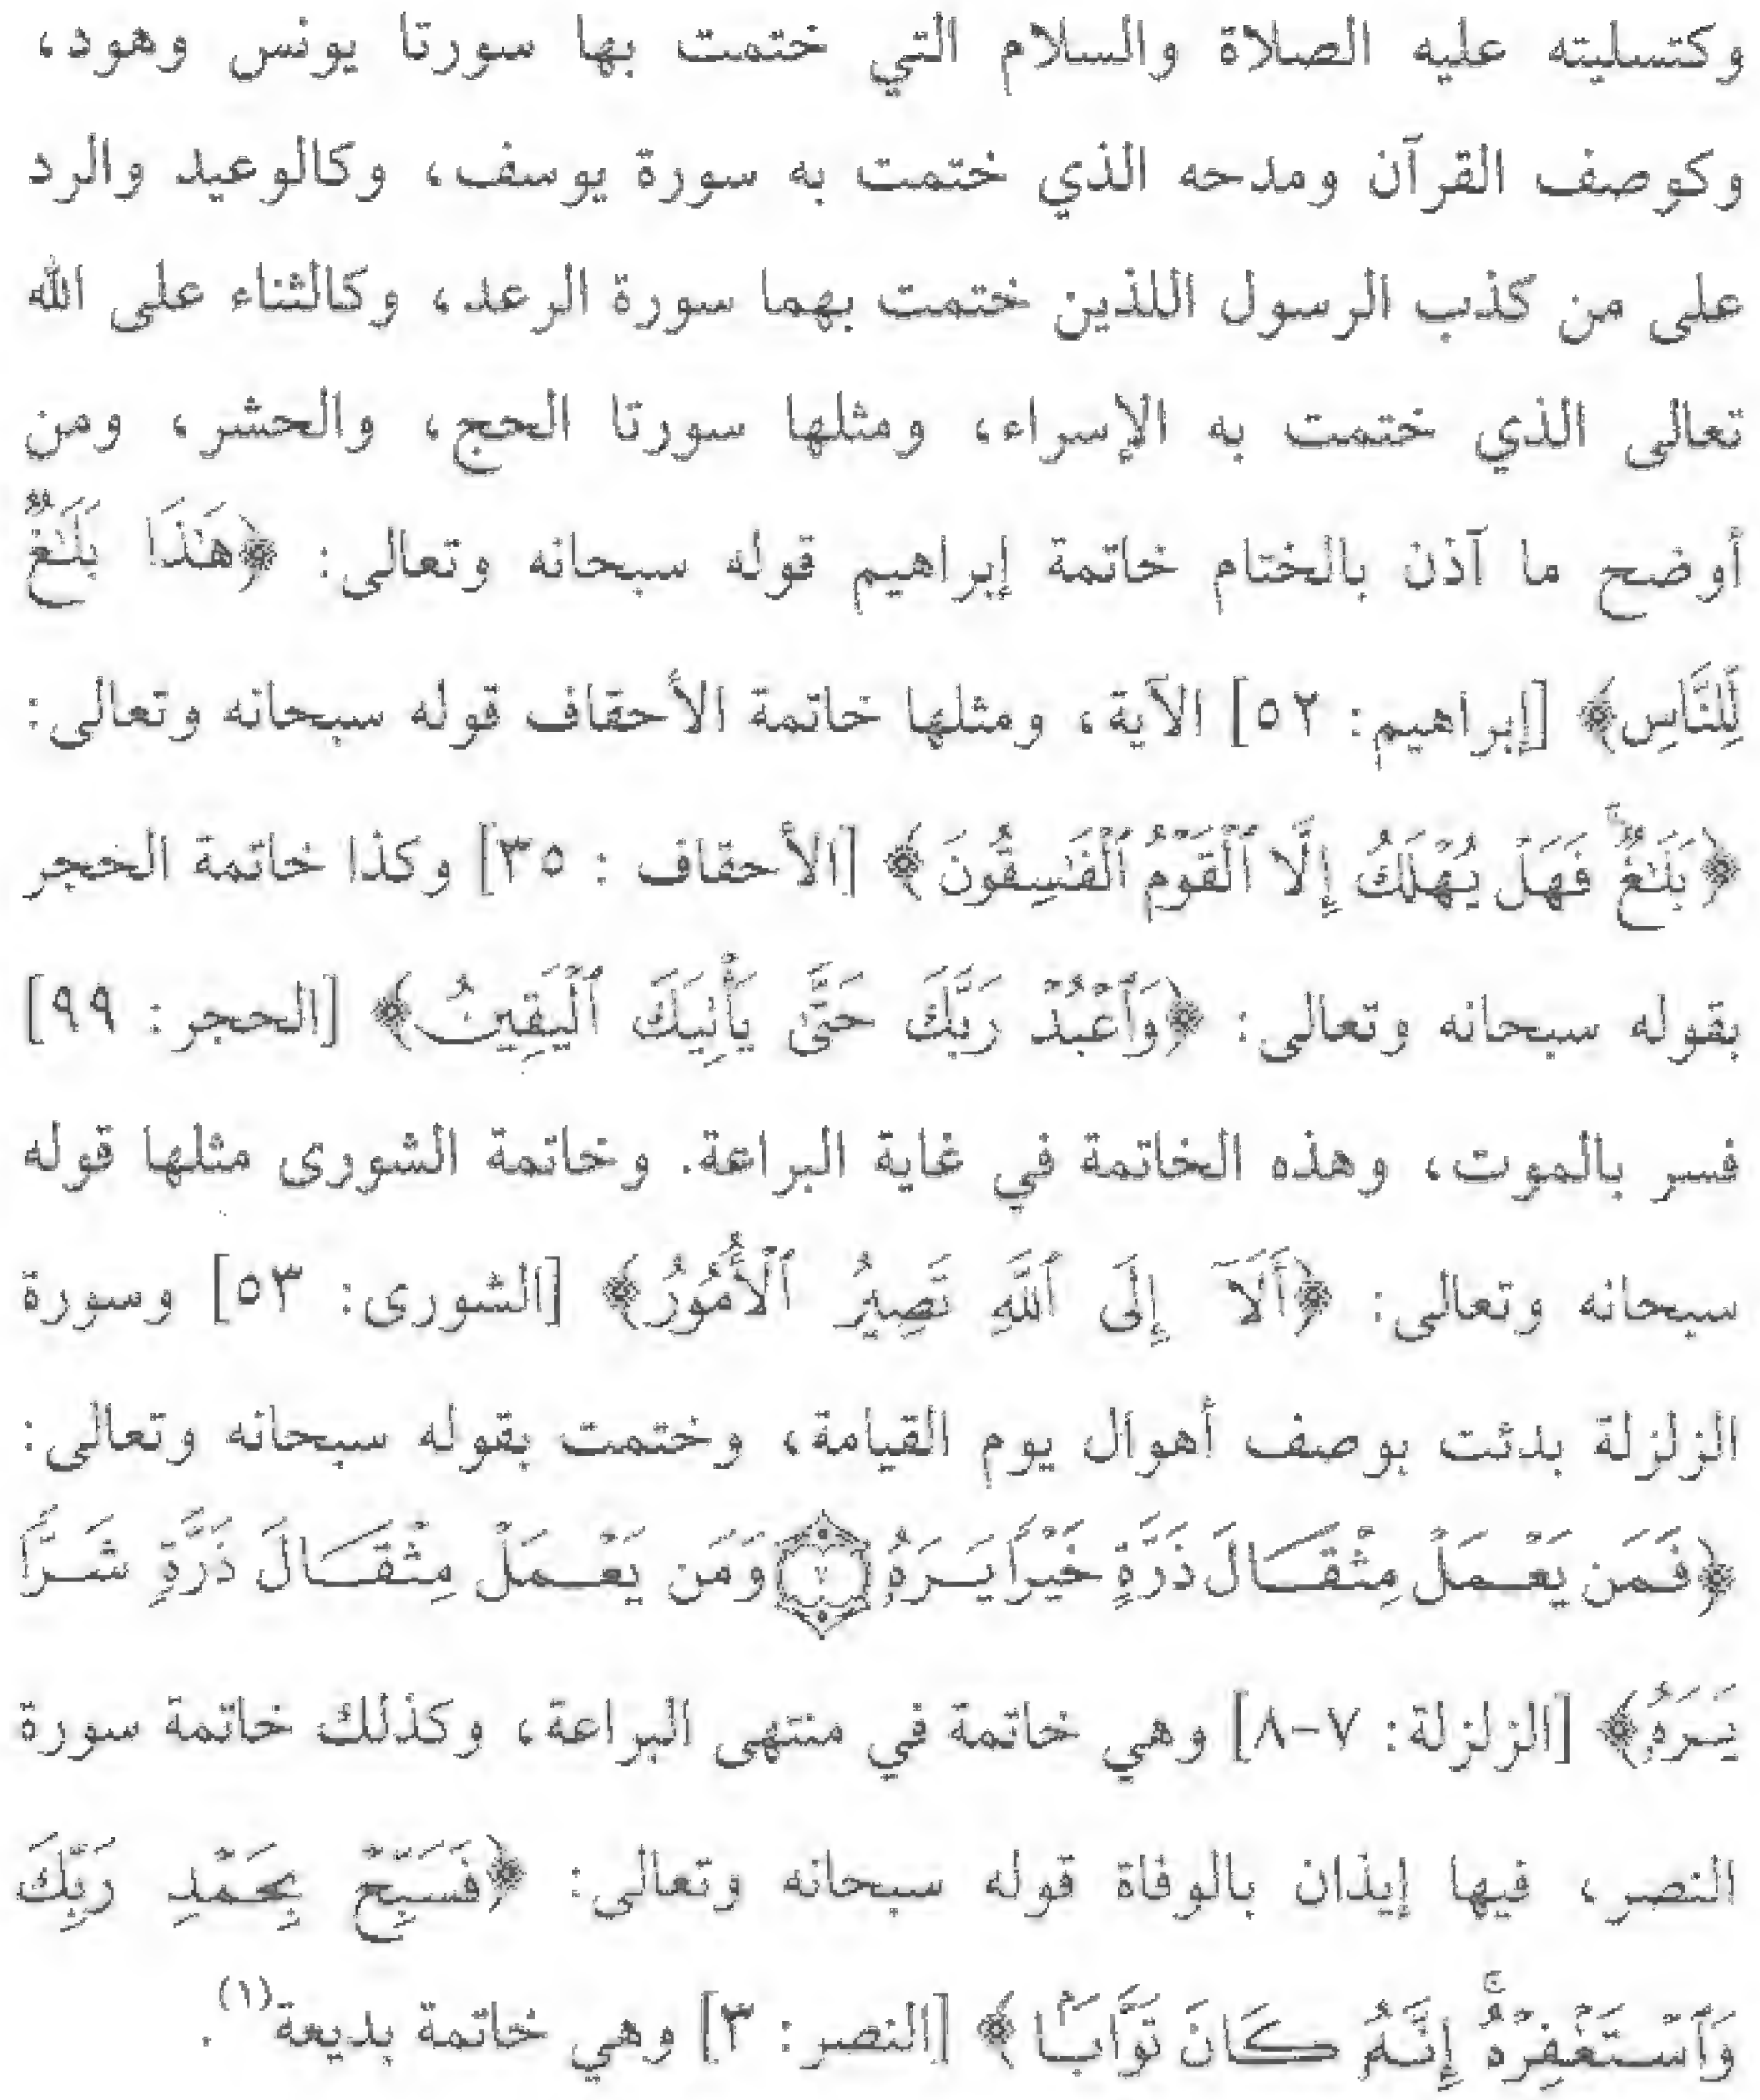 وكتسليته عليه الصلاة والسلام التي ختمت بها سورتا يونس وهود،
وكوصف القرآن ومدحه الذي ختمت به سورة يوسف، وكالوعيد والرد
على من كذب الرسول اللذين ختمت بهما سورة الرعد، وكالثناء على الله
تعالى الذي ختمت به الإسراء، ومثلها سورتا الحج، والحشر، ومن
أوضح ما آذن بالختام خاتمة إبراهيم قوله سبحانه وتعالى: ﴿هَٰذَا بَلَٰغٌ
لِّلنَّاسِ﴾ [إبراهيم: ٥٢] الآية، ومثلها خاتمة الأحقاف قوله سبحانه وتعالى:
﴿بَلَٰغٌۚ فَهَلۡ يُهۡلَكُ إِلَّا ٱلۡقَوۡمُ ٱلۡفَٰسِقُونَ﴾ [الأحقاف : ٣٥] وكذا خاتمة الحجر
بقوله سبحانه وتعالى: ﴿وَٱعۡبُدۡ رَبَّكَ حَتَّىٰ يَأۡتِيَكَ ٱلۡيَقِينُ﴾ [الحجر: ٩٩]
فسر بالموت، وهذه الخاتمة في غاية البراعة. وخاتمة الشورى مثلها قوله
سبحانه وتعالى: ﴿أَلَآ إِلَى ٱللَّهِ تَصِيرُ ٱلۡأُمُورُ﴾ [الشورى: ٥٣] وسورة
الزلزلة بدئت بوصف أهوال يوم القيامة، وختمت بقوله سبحانه وتعالى:
﴿فَمَن يَعۡمَلۡ مِثۡقَالَ ذَرَّةٍ خَيۡرٗا يَرَهُۥ ٧ وَمَن يَعۡمَلۡ مِثۡقَالَ ذَرَّةٖ شَرّٗا
يَرَهُۥ﴾ [الزلزلة: ٧-٨] وهي خاتمة في منتهى البراعة، وكذلك خاتمة سورة
النصر، فيها إيذان بالوفاة قوله سبحانه وتعالى: ﴿فَسَبِّحۡ بِحَمۡدِ رَبِّكَ
وَٱسۡتَغۡفِرۡهُۚ إِنَّهُۥ كَانَ تَوَّابَۢا﴾ [النصر: ٣] وهي خاتمة بديعة(١).